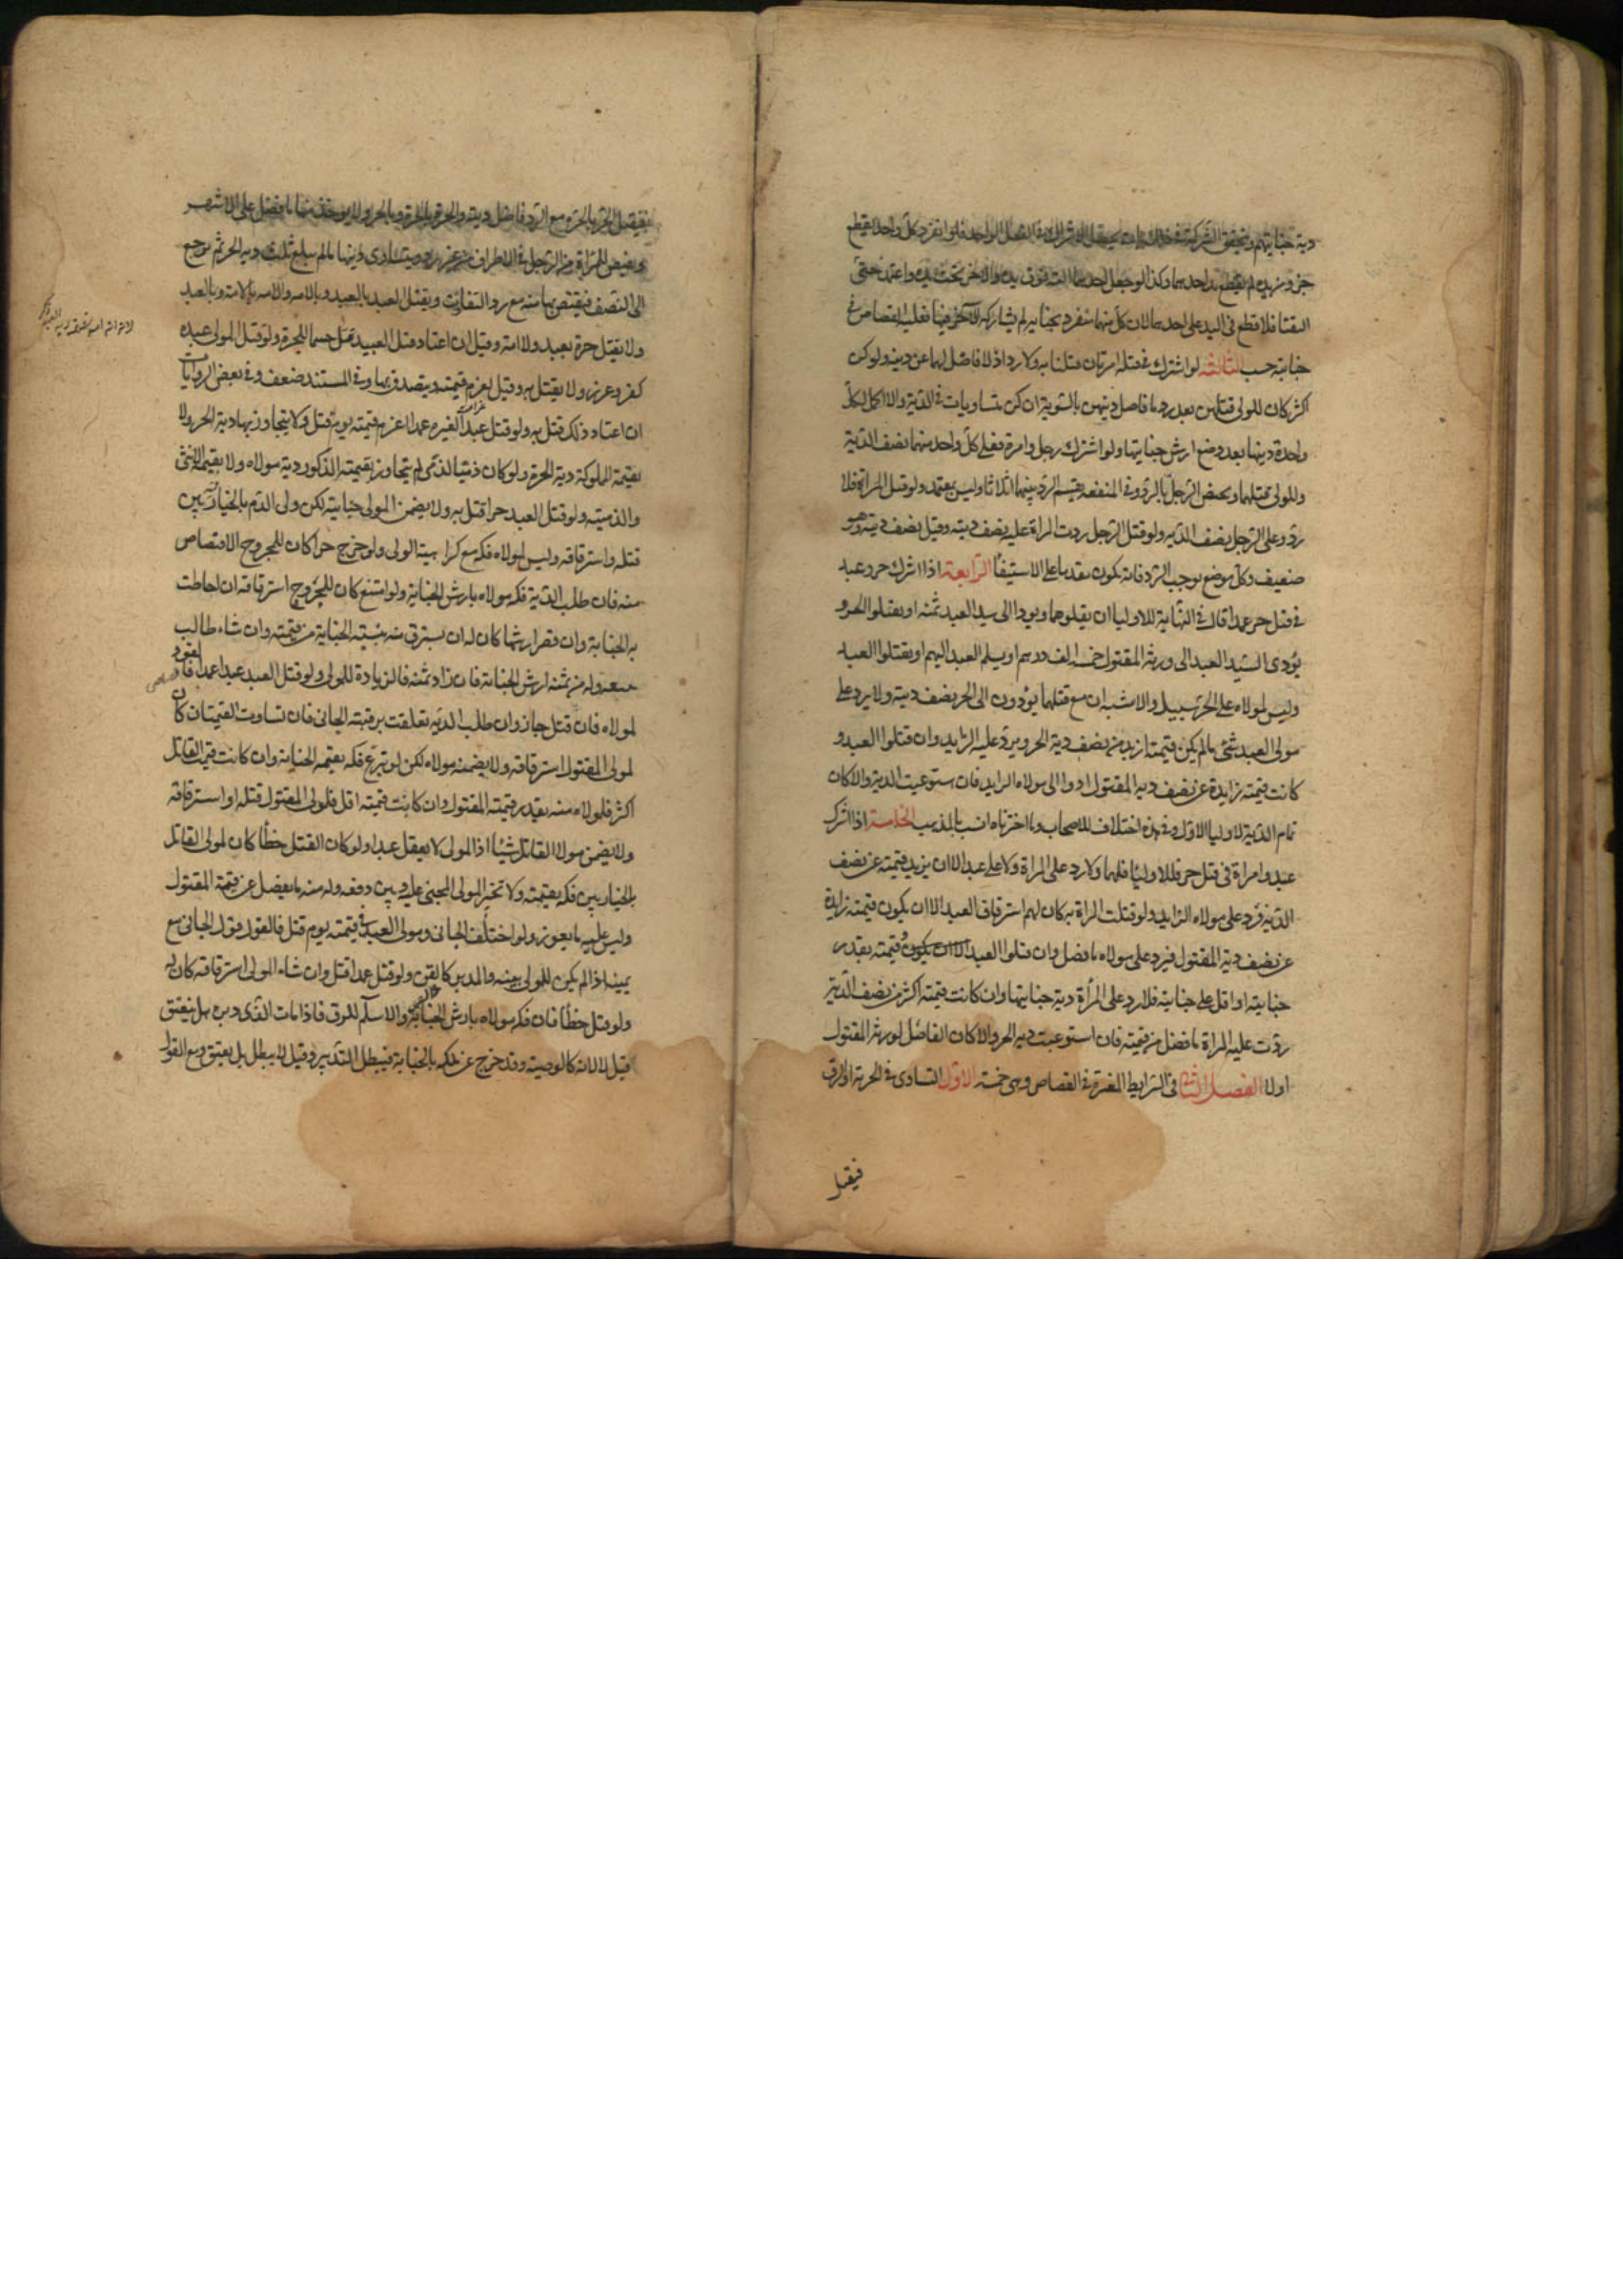 دية جنايتهم وتتحقق الشركة في ذلك بان يحصل الاشتراك في الفعل الواحد فلو انفرد كل واحد بقطع
جزء من يده لم يقطع يد احدهما وكذا لو جعل احدهما آلته فوق يده والاخر تحت يده واعتمد حتى
التقتا فلا قطع في اليد على احدهما لان كلا منهما منفرد بجناية لم يشاركه الآخر فيها فعليه القصاص في
جنايته حسب الثالثة لو اشترك في قتله امرتان قتلتا به ولا رد اذ لا فاضل لهما عن ديته ولو كن
اكثر كان للولى قتلهن بعد رد ما فاضل ديتهن بالسوية ان كن متساويات في الدية والا اكمل لكل
واحدة ديتها بعد وضع ارش جنايتها ولو اشترك رجل وامرة فعلى كل واحد منهما نصف الدية
وللولى قتلهما ويختص الرجل بالرد وفي المقنعة يقسم الرد بينهما اثلاثا وليس بمعتمد ولو قتل المراة فلا
رد وعلى الرجل نصف الدية ولو قتل الرجل ردت المراة عليه نصف ديته وقيل نصف ديتها وهو
ضعيف وكل موضع يوجب الرد فانه يكون مقدما على الاستيفا الرابعة اذا اشترك حر وعبد
في قتل حر عمدا قال في النهاية للاوليا ان يقتلوهما ويودوا الى سيد العبد ثمنه او يقتلوا الحر و
يؤدى السيد العبد الى ورثة المقتول خمسة الف درهم او يسلم العبد اليهم او يقتلوا العبد
وليس لمولاه على الحر سبيل والاشبه ان مع قتلهما يؤدون الى الحر نصف ديته ولا يرد على
مولى العبد شئ ما لم يكن قيمته ازيد من نصف دية الحر ويرد عليه الزايد وان قتلوا العبد و
كانت قيمته زايدة عن نصف دية المقتول ادوا الى مولاه الزايد فان استوعبت الدية والا كان
تمام الدية لاوليا الاول وفي هذه اختلاف للاصحاب وما اخترناه انسب بالمذهب الخامسة اذا اشترك
عبد وامراة في قتل حر فللاولياء قتلهما ولا رد على المراة ولا على عبد الا ان يزيد قيمته عن نصف
الدية فيرد على مولاه الزايد ولو قتلت المراة به كان لهم استرقاق العبد الا ان يكون قيمته زايدة
عن نصف دية المقتول فيرد على مولاه ما فضل وان قتلوا العبد الا ان يكون و قيمته بقدر
جنايته او اقل على جنايته فلا رد على المرأة دية جنايتها وان كانت قيمته اكثر من نصف الدية
ردت عليه المراة ما فضل من قيمته فان استوعبت دية الحر والا كان الفاضل لورثة المقتول
اولا الفصل الثانى في الشرايط المعتبرة في القصاص وهى خمسة الاول التساوى في الحرية او الرق
فيقتل
فيقتل الحر بالحرة مع الرد فاضل ديته والحرة بالحرة وبالحر ولا يوخذ منها ما فضل على الاشهر
ويقتص للمراة من الرجل في الاطراف من غير رد ويتساوى ديتهما ما لم يبلغ ثلث دية الحر ثم يرجع
الى النصف فيقتص لها منه مع رد التفاوت ويقتل العبد بالعبد وبالامه والامه بالامة وبالعبد
ولا يقتل حرة بعبد ولا امة وقيل ان اعتاد قتل العبيد قتل حسما للجرة ولو قتل المولى عبده
كفر وعزر ولا يقتل به وقيل يغرم قيمته ويتصدق بها وفي المستند ضعف وفي بعض الروايات
ان اعتاد ذلك قتل به ولو قتل عبدا لغيره عمدا غرم قيمته يوم قتل ولا يتجاوز بها دية الحر ولا
بقيمة المملوكة دية الحرة ولو كان ذميا لذمى لم يتجاوز بقيمته الذكور دية مولاه ولا بقيمة الانثى
والذمية ولو قتل العبد حرا قتل به ولا يضمن المولى جنايته لكن ولى الدم بالخيار بين
قتله واسترقاقه وليس لمولاه فكه مع كراهية الولى ولو جرح حرا كان للمجروح الاقتصاص
منه فان طلب الدية فكه مولاه بارش الجناية ولو امتنع كان للمجروح استرقاقه ان احاطت
به الجناية وان قصر ارشها كان له ان يسترق منه بنسبة الجناية من قيمته وان شاء طالب
ببيعه وله من ثمنه ارش الجناية فان زاد ثمنه فالزيادة للمولى ولو قتل العبد عبدا عمدا فالقود
لمولاه فان قتل جاز وان طلب الدية تعلقت برقبته الجانى فان تساوت القيمتان كان
لمولى المقتول استرقاقه ولا يضمنه مولاه لكن لو تبرع فكه بقيمة الجناية وان كانت قيمة القاتل
اكثر فلمولاه منه بقدر قيمته المقتول وان كانت قيمته اقل فلمولى المقتول قتله او استرقاقه
ولا يضمن مولا القاتل شيئا اذ المولى لا يعقل عبدا ولو كان القتل خطأ كان لمولى القاتل
بالخيار بين فكه بقيمته ولا تخير المولى المجنى عليه وبين دفعه وله منه ما يفضل عن قيمة المقتول
وليس عليه ما يعوز ولو اختلف الجانى ومولى العبد في قيمته يوم قتل فالقول قول الجانى مع
يمينه اذا لم يكن للمولى بينه والمدبر كالقن ولو قتل عمدا قتل وان شاء المولى استرقاقه كان له
ولو قتل خطأ فان فكه مولاه بارش الجناية والا سلم للرق فاذا مات الذى دبره هل ينعتق
قيل لا لانه كالوصية وقد خرج عن ملكه بالجناية فيبطل التدبير وقيل لا يبطل بل يعتق ومع القول